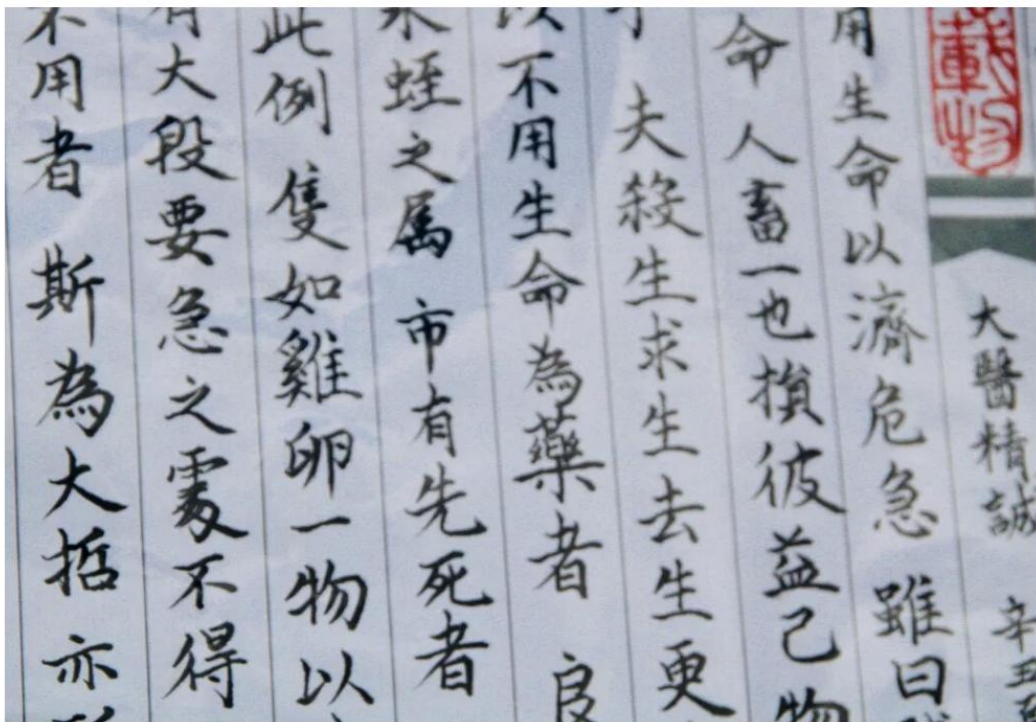 載物
大醫精誠 辛丑
用生命以濟危急 雖曰
命 人畜一也損彼益己 物
夫殺生求生去生更
以不用生命為藥者 良
水蛭之属 市有先死者
此例 隻如雞卵一物以
有大段要急之處不得
不用者 斯為大哲 亦